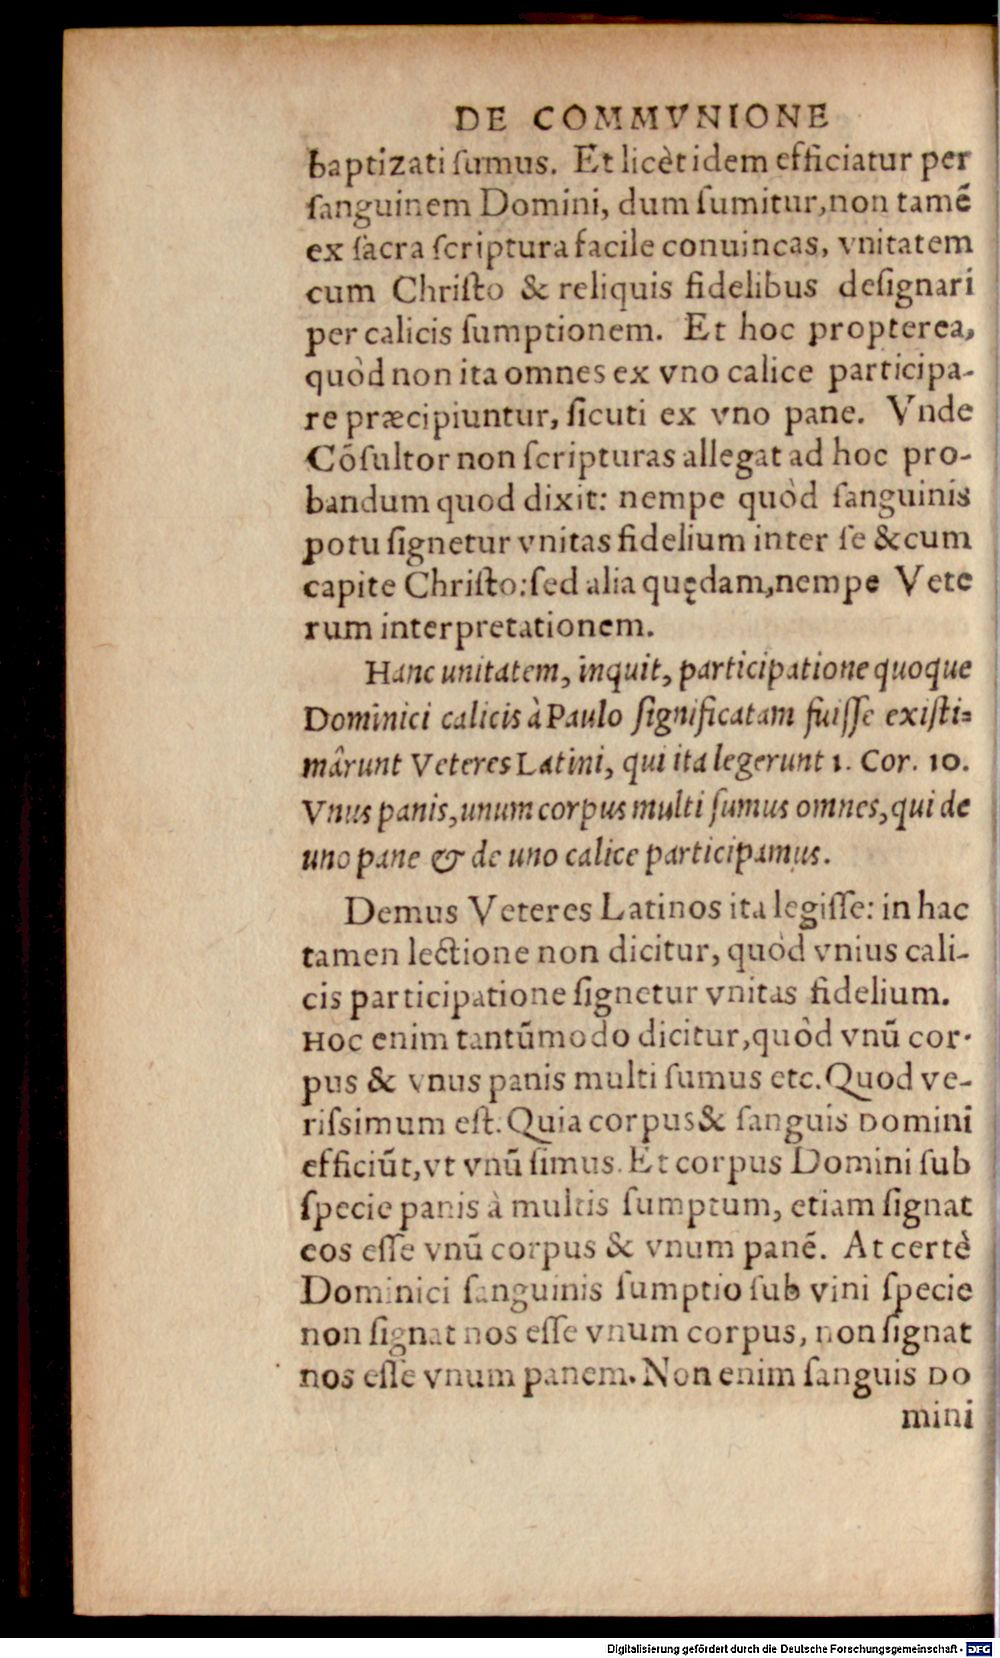 DE COMMVNIONE
baptizati ſumus. Et licèt idem efficiatur per
ſanguinem Domini, dum ſumitur, non tamē
ex ſacra ſcriptura facile conuincas, vnitatem
cum Chriſto & reliquis fidelibus deſignari
per calicis ſumptionem. Et hoc propterea,
quòd non ita omnes ex vno calice participa-
re præcipiuntur, ſicuti ex vno pane. Vnde
Cōſultor non ſcripturas allegat ad hoc pro-
bandum quod dixit: nempe quòd ſanguinis
potu ſignetur vnitas fidelium inter ſe & cum
capite Chriſto: ſed alia quędam, nempe Vete
rum interpretationem.
Hanc unitatem, inquit, participatione quoque
Dominici calicis à Paulo ſignificatam fuiſſe exiſti-
mârunt Veteres Latini, qui ita legerunt 1. Cor. 10.
Vnus panis, unum corpus multi ſumus omnes, qui de
uno pane & de uno calice participamus.
Demus Veteres Latinos ita legiſſe: in hac
tamen lectione non dicitur, quòd vnius cali-
cis participatione ſignetur vnitas fidelium.
Hoc enim tantūmodo dicitur, quòd vnū cor-
pus & vnus panis multi ſumus etc. Quod ve-
riſsimum eſt. Quia corpus & ſanguis Domini
efficiūt, vt vnū ſimus. Et corpus Domini ſub
ſpecie panis à multis ſumptum, etiam ſignat
eos eſſe vnū corpus & vnum panē. At certè
Dominici ſanguinis ſumptio ſub vini ſpecie
non ſignat nos eſſe vnum corpus, non ſignat
nos eſſe vnum panem. Non enim ſanguis Do
mini
Digitalisierung gefördert durch die Deutsche Forschungsgemeinschaft - DFG